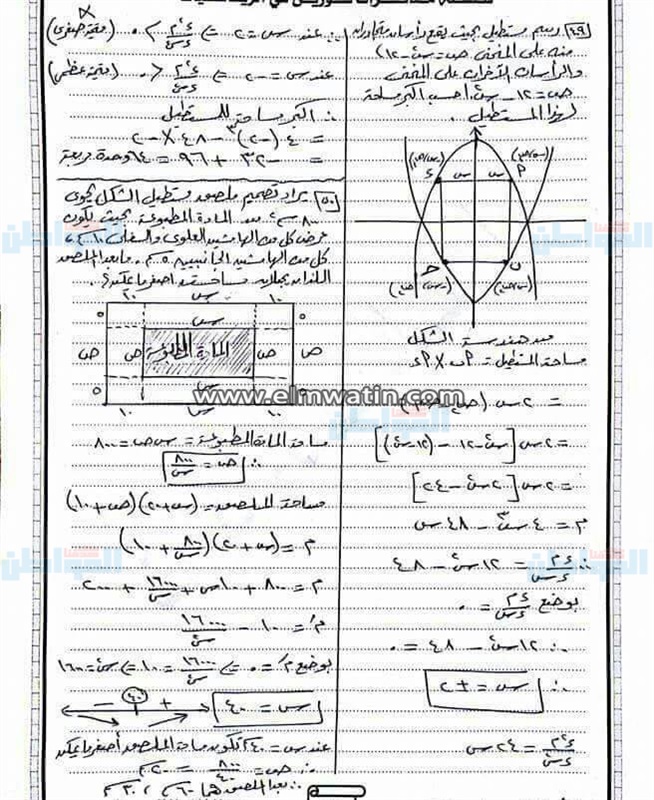 ٤٩ رسم مستطيل بحيث يقع رأسان متجاوران
منه على المنحنى ص = س٢ - ١٢
والرأسان الآخران على المنحنى
ص = ١٢ - س٢ أحسب أكبر مساحة
لهذا المستطيل .
من هندسة الشكل
مساحة المستطيل =
= ٢س
= ٢س [س٢ - ١٢ - (١٢ - س٢)]
= ٢س [٢س٢ - ٢٤]
م = ٤س٣ - ٤٨س
∴ ءم/ءس = ١٢س٢ - ٤٨
بوضع ءم/ءس = ٠
∴ ١٢س٢ - ٤٨ = ٠
∴ س = ±٢
ء٢م/ءس٢ = ٢٤س
∴ عند س = ٢ ⇐ ء٢م/ءس٢ > ٠ (قيمة صغرى)
عند س = -٢ ⇐ ء٢م/ءس٢ < ٠ (قيمة عظمى)
∴ أكبر مساحة للمستطيل
= ٤(-٢)٣ - ٤٨ × -٢
= -٣٢ + ٩٦ = ٦٤ وحدة مربعة
٥٠ يراد تصميم ملصق مستطيل الشكل يحوى
٨٠٠ سم٢ من المادة المطبوعة بحيث يكون
عرض كل من الهامشين العلوى والسفلى ١٠سم ،
كل من الهامشين الجانبيين ٥سم . ما بعدا الملصق
اللذان يجعلان مساحته أصغر ما يمكن ؟
١٠ س ١٠
٥ س ٥
ص ص المادة المطبوعة ص ص
٥ س
١٠ س ١٠
www.elmwatin.com
المواطن
مساحة المادة المطبوعة = س ص = ٨٠٠
∴ ص = ٨٠٠/س
مساحة الملصق = (س + ٢٠)(ص + ١٠)
م = (س + ٢٠)(٨٠٠/س + ١٠)
م = ٨٠٠ + ١٠س + ١٦٠٠٠/س + ٢٠٠
م′ = ١٠ - ١٦٠٠٠/س٢
بوضع م′ = ٠ ⇐ ١٦٠٠٠/س٢ = ١٠ ⇐ س٢ = ١٦٠٠
س = ٤٠
- ٤٠ +
عند س = ٤٠ تكون مساحة الملصق أصغر ما يمكن
∴ ص = ٨٠٠/٤٠ = ٢٠
∴ بعدا الملصق هما ٦٠سم ، ٣٠سم